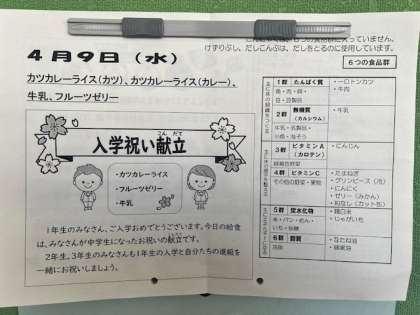 けずりぶし、だしこんぶは、だしをとるのに使用しています。
4月9日(水)
カツカレーライス(カツ)、カツカレーライス(カレー)、
牛乳、フルーツゼリー
入学祝い献立
こんだて
・カツカレーライス
・フルーツゼリー
・牛乳
1年生のみなさん、ご入学おめでとうございます。今日の給食
は、みなさんが中学生になったお祝いの献立です。
2年生、3年生のみんなも1年生の入学と自分たちの進級を
一緒にお祝いしましょう。
6つの食品群
1群 たんぱく質
魚・肉・卵・
豆・豆製品
・一口トンカツ
・牛肉
2群 無機質
(カルシウム)
牛乳・乳製品・
小魚・海そう
・牛乳
3群 ビタミンA
(カロテン)
緑黄色野菜
・にんじん
4群 ビタミンC
その他の野菜・果物
・たまねぎ
・グリンピース(冷)
・にんにく
・ゼリー(みかん)
5群 炭水化物
米・パン・めん・
いも・砂糖
・精白米
・じゃがいも
6群 脂質
油脂
・なたね油